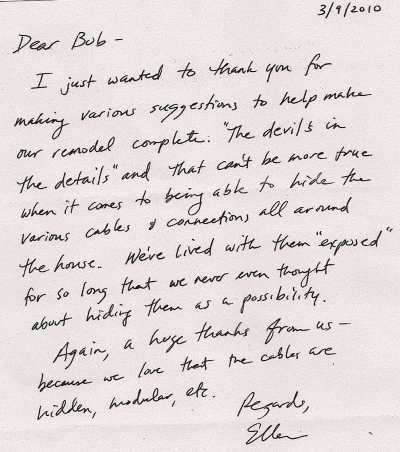 3/9/2010
Dear Bob -
I just wanted to thank you for
making various suggestions to help make
our remodel complete. "The devil's in
the details" and that can't be more true
when it comes to being able to hide the
various cables & connections all around
the house. We've lived with them "exposed"
for so long that we never even thought
about hiding them as a possibility.
Again, a huge thanks from us -
because we love that the cables are
hidden, modular, etc.
Regards,
Ellen